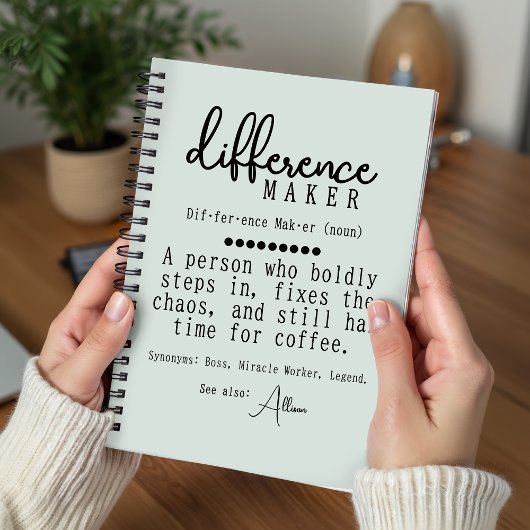 difference
MAKER
Dif•fer•ence Mak•er (noun)
A person who boldly
steps in, fixes the
chaos, and still ha
time for coffee.
Synonyms: Boss, Miracle Worker, Legend.
See also: Allison